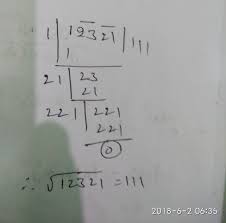 1 | 19321 | 111
1
21 | 23
21
221 | 221
221
0
∴ √12321 = 111
2018-6-2 06:35